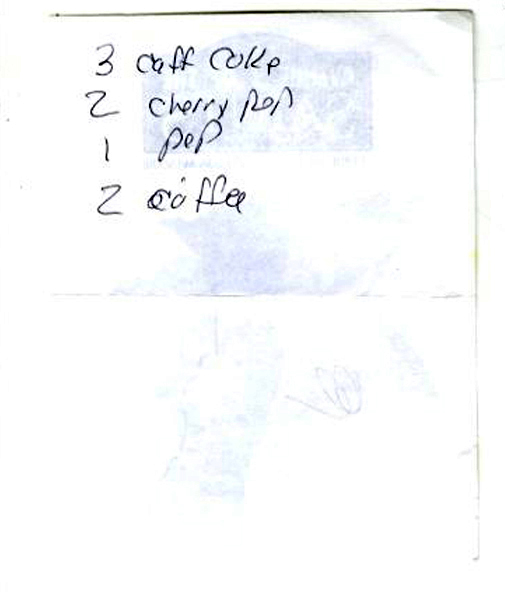 3 caff coke
2 cherry pop
1 pop
2 coffee